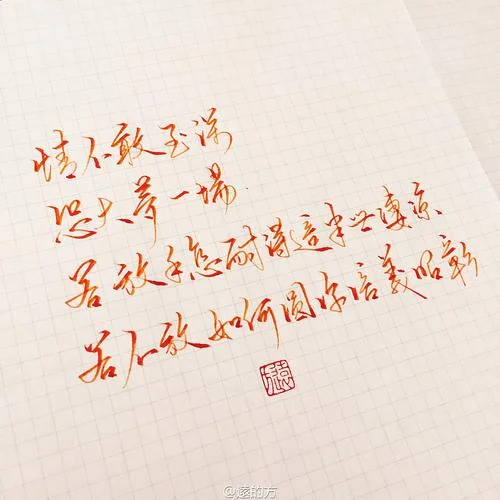 情不敢至深
恐大夢一場
若放手怎耐得這半世凄凉
若不放如何圓你信義昭彰
@遠的方